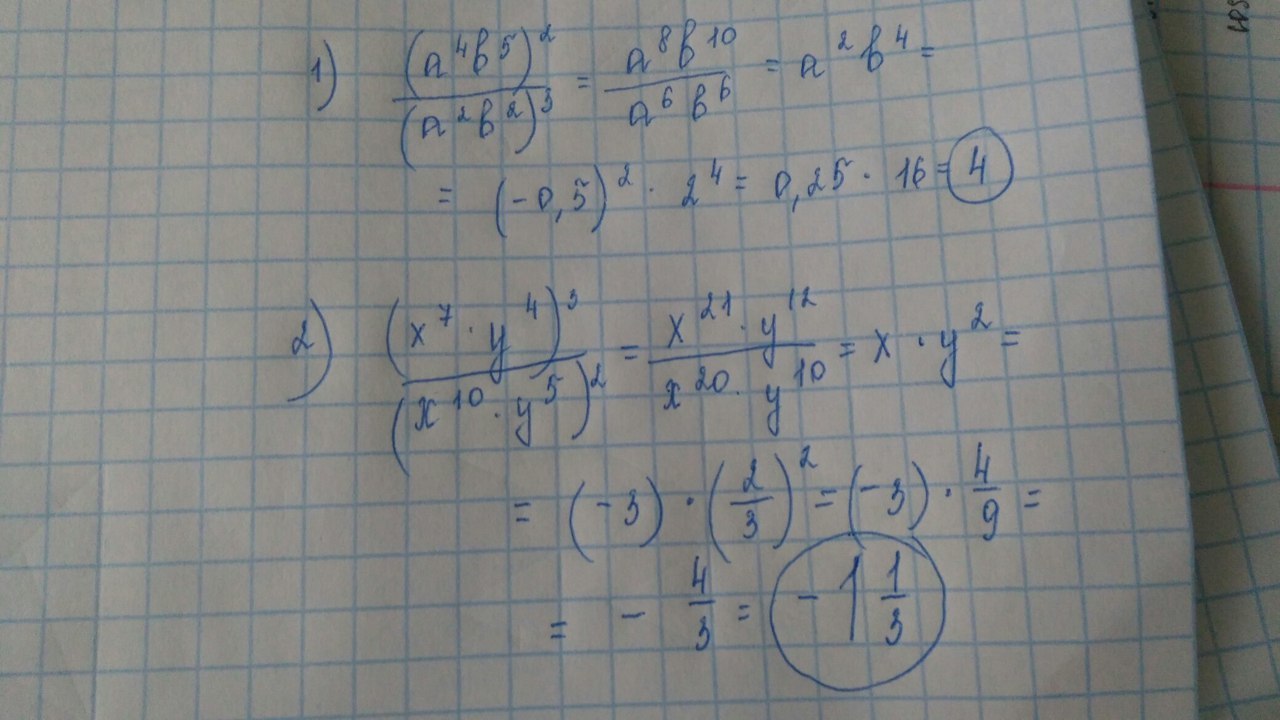 1) (a⁴b⁵)² / (a²b²)³ = a⁸b¹⁰ / a⁶b⁶ = a²b⁴ =
= (-0,5)² · 2⁴ = 0,25 · 16 = 4
2) (x⁷ · y⁴)³ / (x¹⁰ · y⁵)² = x²¹ · y¹² / x²⁰ · y¹⁰ = x · y² =
= (-3) · (2/3)² = (-3) · 4/9 =
= - 4/3 = - 1 1/3